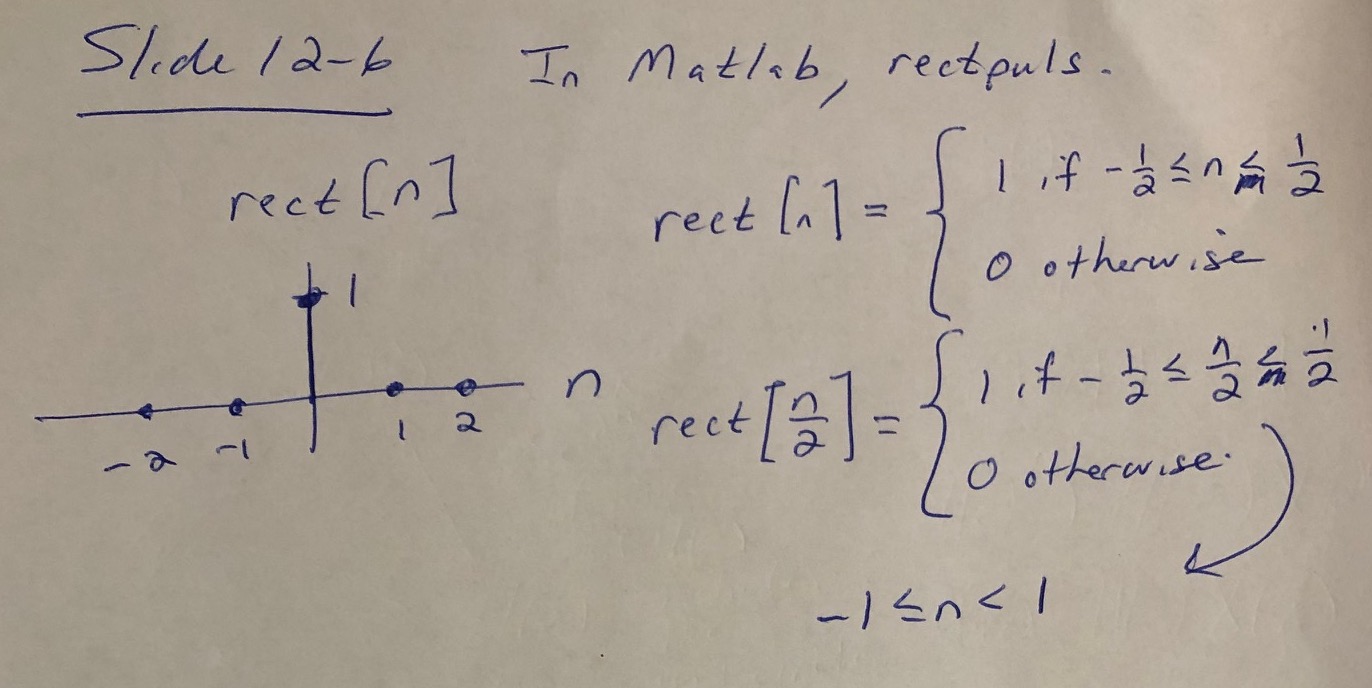 Slide 12-6 In Matlab, rectpuls.
rect[n]
1
n
-2 -1 1 2
rect[n] = { 1, if -1/2 ≤ n ≤ 1/2
0 otherwise
rect[n/2] = { 1, if -1/2 ≤ n/2 ≤ 1/2
0 otherwise.
-1 ≤ n < 1